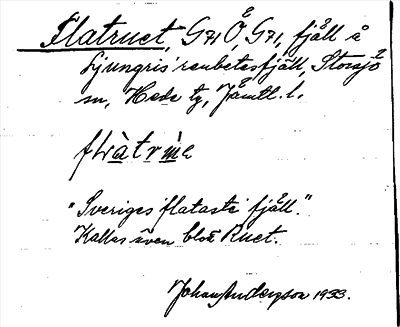 Flatruet, G71 Ö, G71, fjäll å
Ljungris' renbetesfjäll, Storsjö
sn, Hede tg, Jämtl. l.
"Sveriges flataste fjäll."
Kallas även blott Ruet.
Johan Anderson 1933.